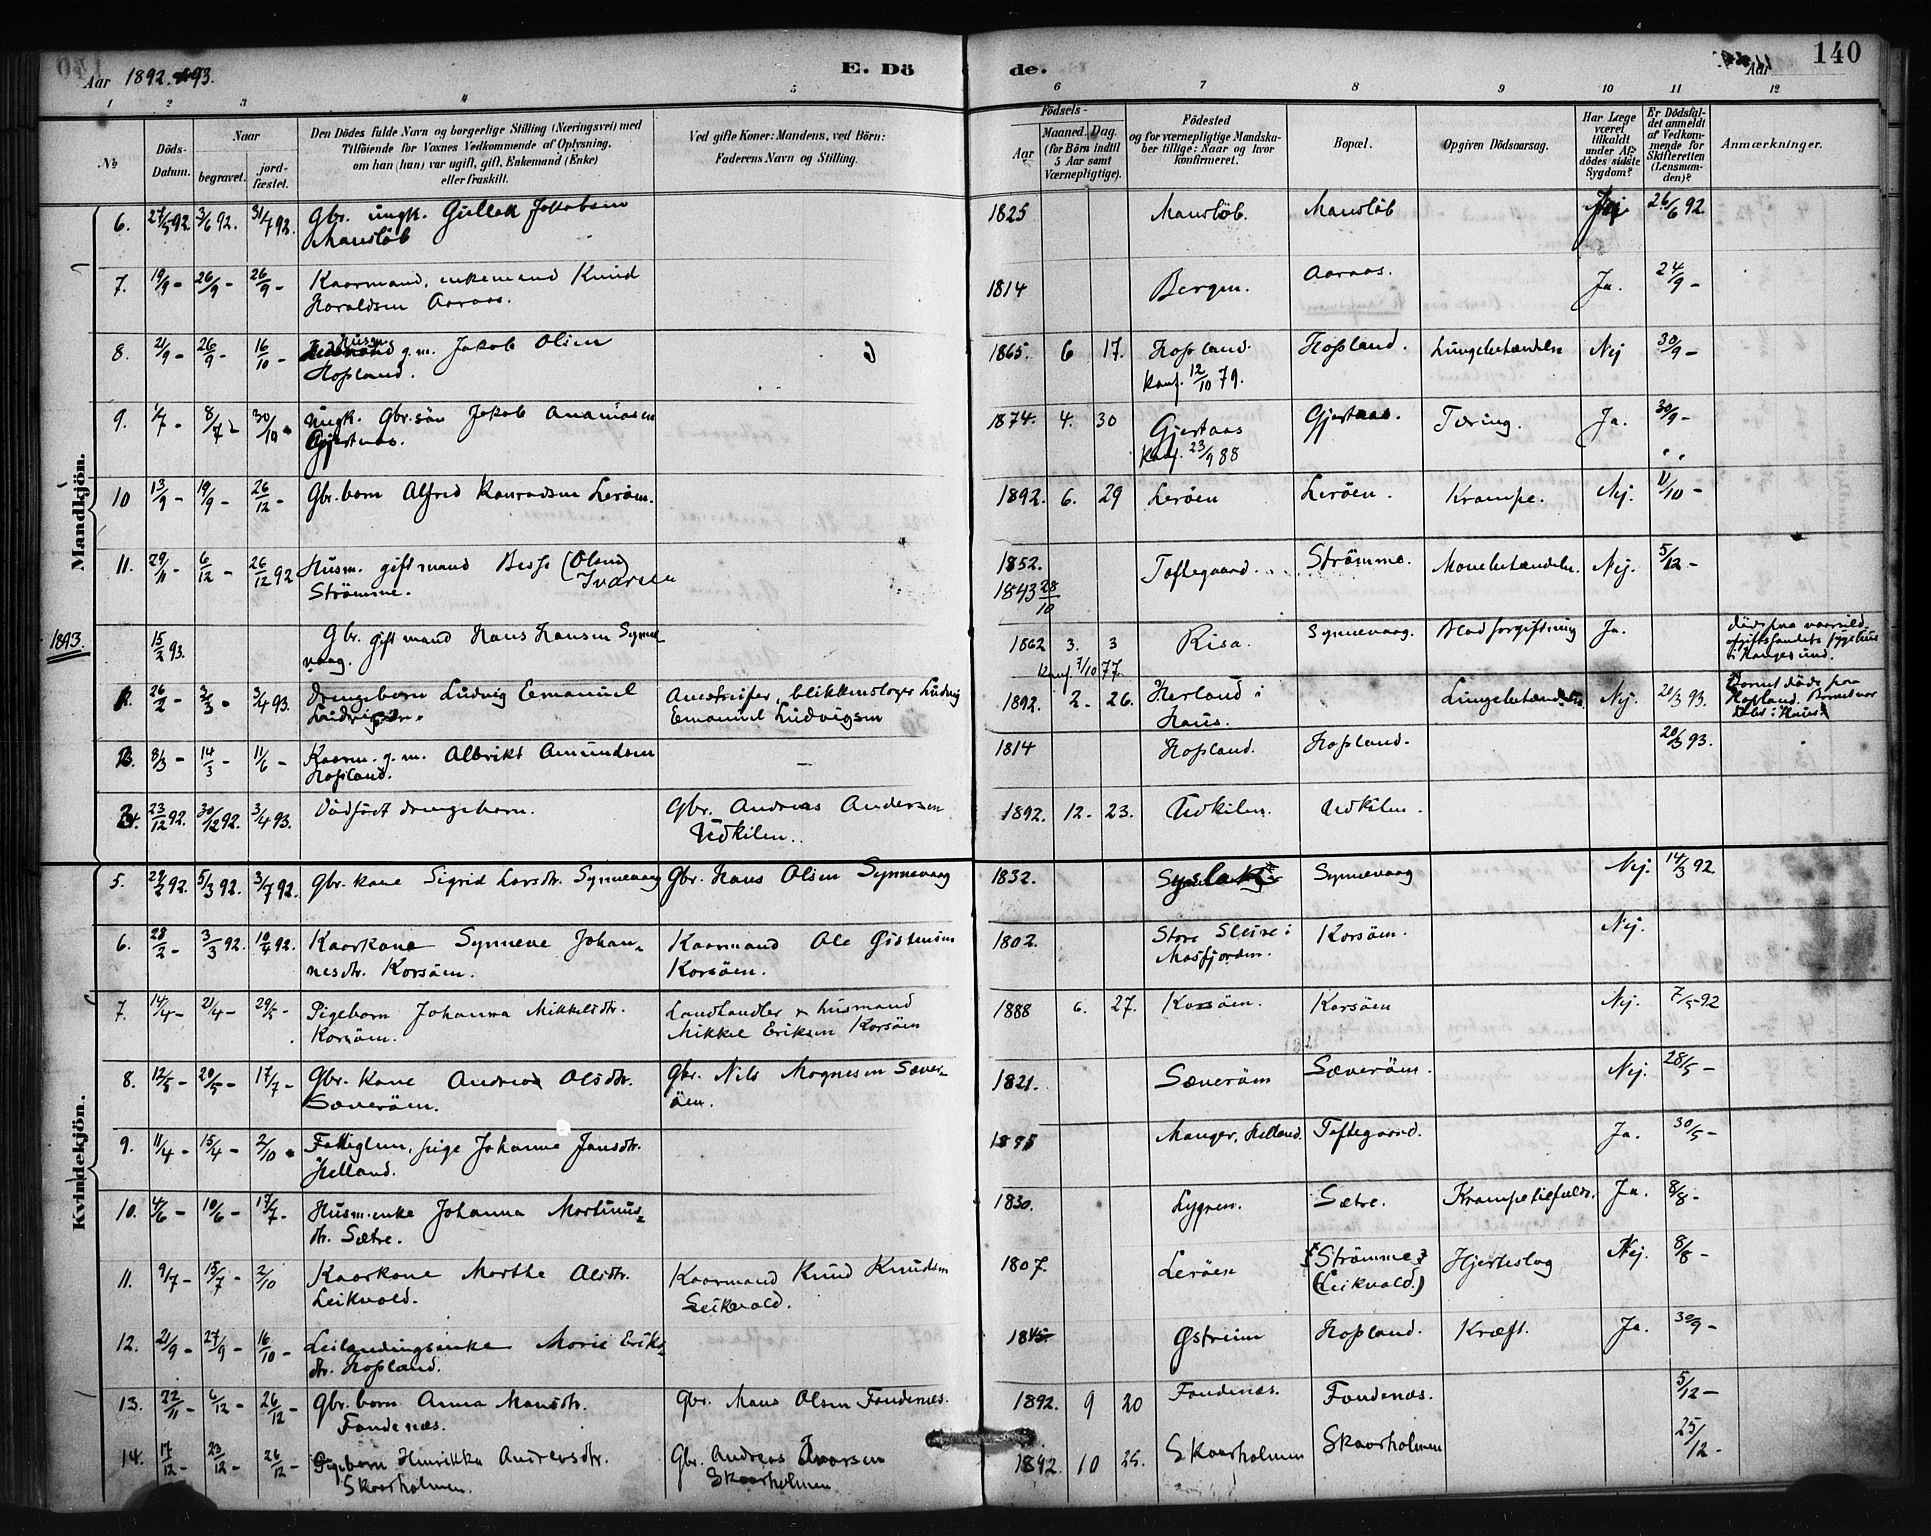 Aar 1892. 93.
E. Dö
de.
Aar
140
1
2
3
4
5
6
7
8
9
10
11
12
No
Döds-
Datum.
Naar
begravet.
jord-
fæstet.
Den Dödes fulde Navn og borgerlige Stilling (Næringsvei) med
Tilföiende for Voxnes Vedkommende af Oplysning,
om han (hun) var ugift, gift, Enkemand (Enke)
eller fraskilt.
Ved gifte Koner: Mandens, ved Börn:
Faderens Navn og Stilling.
Födsels-
Aar
Maaned.
Dag.
(for Börn indtil
5 Aar samt
Værnepligtige).
Födested
og for værnepligtige Mandska-
ber tillige: Naar og hvor
konfirmeret.
Bopæl.
Opgiven Dödsaarsag.
Har Læge
været
tilkaldt
under Af-
dödes sidste
Sygdom?
Er Dödsfal-
det anmeldt
af Vedkom-
mende for
Skifteretten
(Lensman-
den)?
Anmærkninger.
Mandkjön.
6. 27/5 92. 3/6 92. 31/7 92. Gbr. ungk. Gullak Jakobsen
Mansløb
1825 Mansløb. Mansløb 26/6 92
7. 19/9 - 26/9 - 26/9 - Kaarmand, enkemand Knud
Haraldsen Aaraas.
1814 Bergen. Aaraas. Ja. 24/9 -
8. 21/9 - 26/9 - 16/10 - Husm. g.m. Jakob Olsen
Hopland.
1865. 6 17. Hopland. Hopland. Lungebetændelse Nej 30/9 -
Konf. 12/10 79.
9. 1/7 - 8/7 - 30/10 - Ungk. Gbr. søn Jakob Ananiasen
Gjertaas.
1874. 4. 30 Gjertaas Gjertaas. Tæring. Ja. 30/9 -
Konf. 23/9 88
10 13/9 - 19/9 - 26/12 - Gbr. barn Alfred Konradsen Lerøen.
1892. 6. 29 Lerøen Lerøen. Krampe. Nej. 11/10 -
11. 29/11 - 6/12 - 26/12 92 Husm. gift mand (Olsen)
Ivarsen
Strømme.
1852. Toftegaard. Strømme. Nej. 5/12 -
1843 28/10
1893.
15/2 93. Gbr. gift mand Hans Hansen Synne-
vaag.
1862 3. 3 Risa. Synnevaag. Blodforgiftning Ja.
Konf. 7/10 77.
i Haugesund.
26/2 - 3/3 - 3/4 93. Drengebarn Ludvig Emanuel
Ludvigsen.
blikkenslager Ludvig
Emanuel Ludvigsen
1892. 2. 26. Herland i
Haus.
Lungebetændelse Nej. 20/3 93.
Barnet døde paa
Hopland. Barnet var
8/3 - 14/3 - 11/6 - Kaarm. g. m. Albrikt Amundsen
Hopland.
1814 Hopland. Hopland. 20/3 93.
23/12 92. 30/12 92. 3/4 93. Dødfødt drengebarn. Gbr. Andreas Andersen
Udkilen.
1892. 12. 23. Udkilen. Udkilen.
Kvindekjön.
5. 29/2 92. 5/3 92. 3/7 92. Gbr. kone Sigrid Larsdtr. Synnevaag Gbr. Hans Olsen Synnevaag
1832. Syslak Synnevaag Nej. 14/3 92.
6. 28/2 - 3/3 92. 10/4 92. Kaarkone Synneve Johan-
nesdtr. Korsøen.
Kaarmand Ole Østensen
Korsøen.
1802. Store Sleire i
Masfjorden.
Korsøen. Nej.
7. 14/4 - 21/4 - 29/5 - Pigebarn Johanna Mikkelsdtr.
Korsøen.
Landhandler & husmand
Mikkel Eriksen Korsøen
1888 6. 27. Korsøen. Korsøen Nej. 7/5 92
8. 12/5 - 20/5 - 17/7 - Gbr. kone Andrea Olsdtr.
Sæverøen.
Gbr. Nils Mognesen Sæver-
øen.
1821. Sæverøen Sæverøen. Nej. 28/5 -
9. 11/4 - 15/4 - 2/10 - Fattiglem, pige Johanne Jansdtr.
Helland.
Manger, Helland. Toftegaard. Ja. 30/5 -
10. 4/6 - 10/6 - 17/7 - Husm.enke Johanna Martinus-
dtr. Sætre.
1830. Lygren. Sætre. Krampetilfælde. Ja. 8/8 -
11. 9/7 - 15/7 - 2/10 Kaarkone Marthe Olsdtr.
Leikvold.
Kaarmand Knud Knudsen
Leikvold.
1807. Lerøen Strømme
(Leikvold)
Hjerteslag Nej. 8/8 -
12. 21/9 - 27/9 - 16/10 - Leilændingsenke Marie Eriks-
dtr. Hopland.
1845. Østreim Hopland. Kræft. Ja. 30/9 -
13. 22/11 - 6/12 - 26/12 - Gbr. barn Anna Mansdtr.
Fondenæs.
Gbr. Mans Olsen Fondenæs.
1892. 9 20 Fondenæs. Fondenæs. 5/12 -
14. 17/12 - 23/12 - 26/12 - Pigebarn Henrikka Andreasdtr.
Skaarholmen.
Gbr. Andreas Ivarsen
Skaarholmen
1892. 10 25. Skaarholmen Skaarholmen 25/12 -